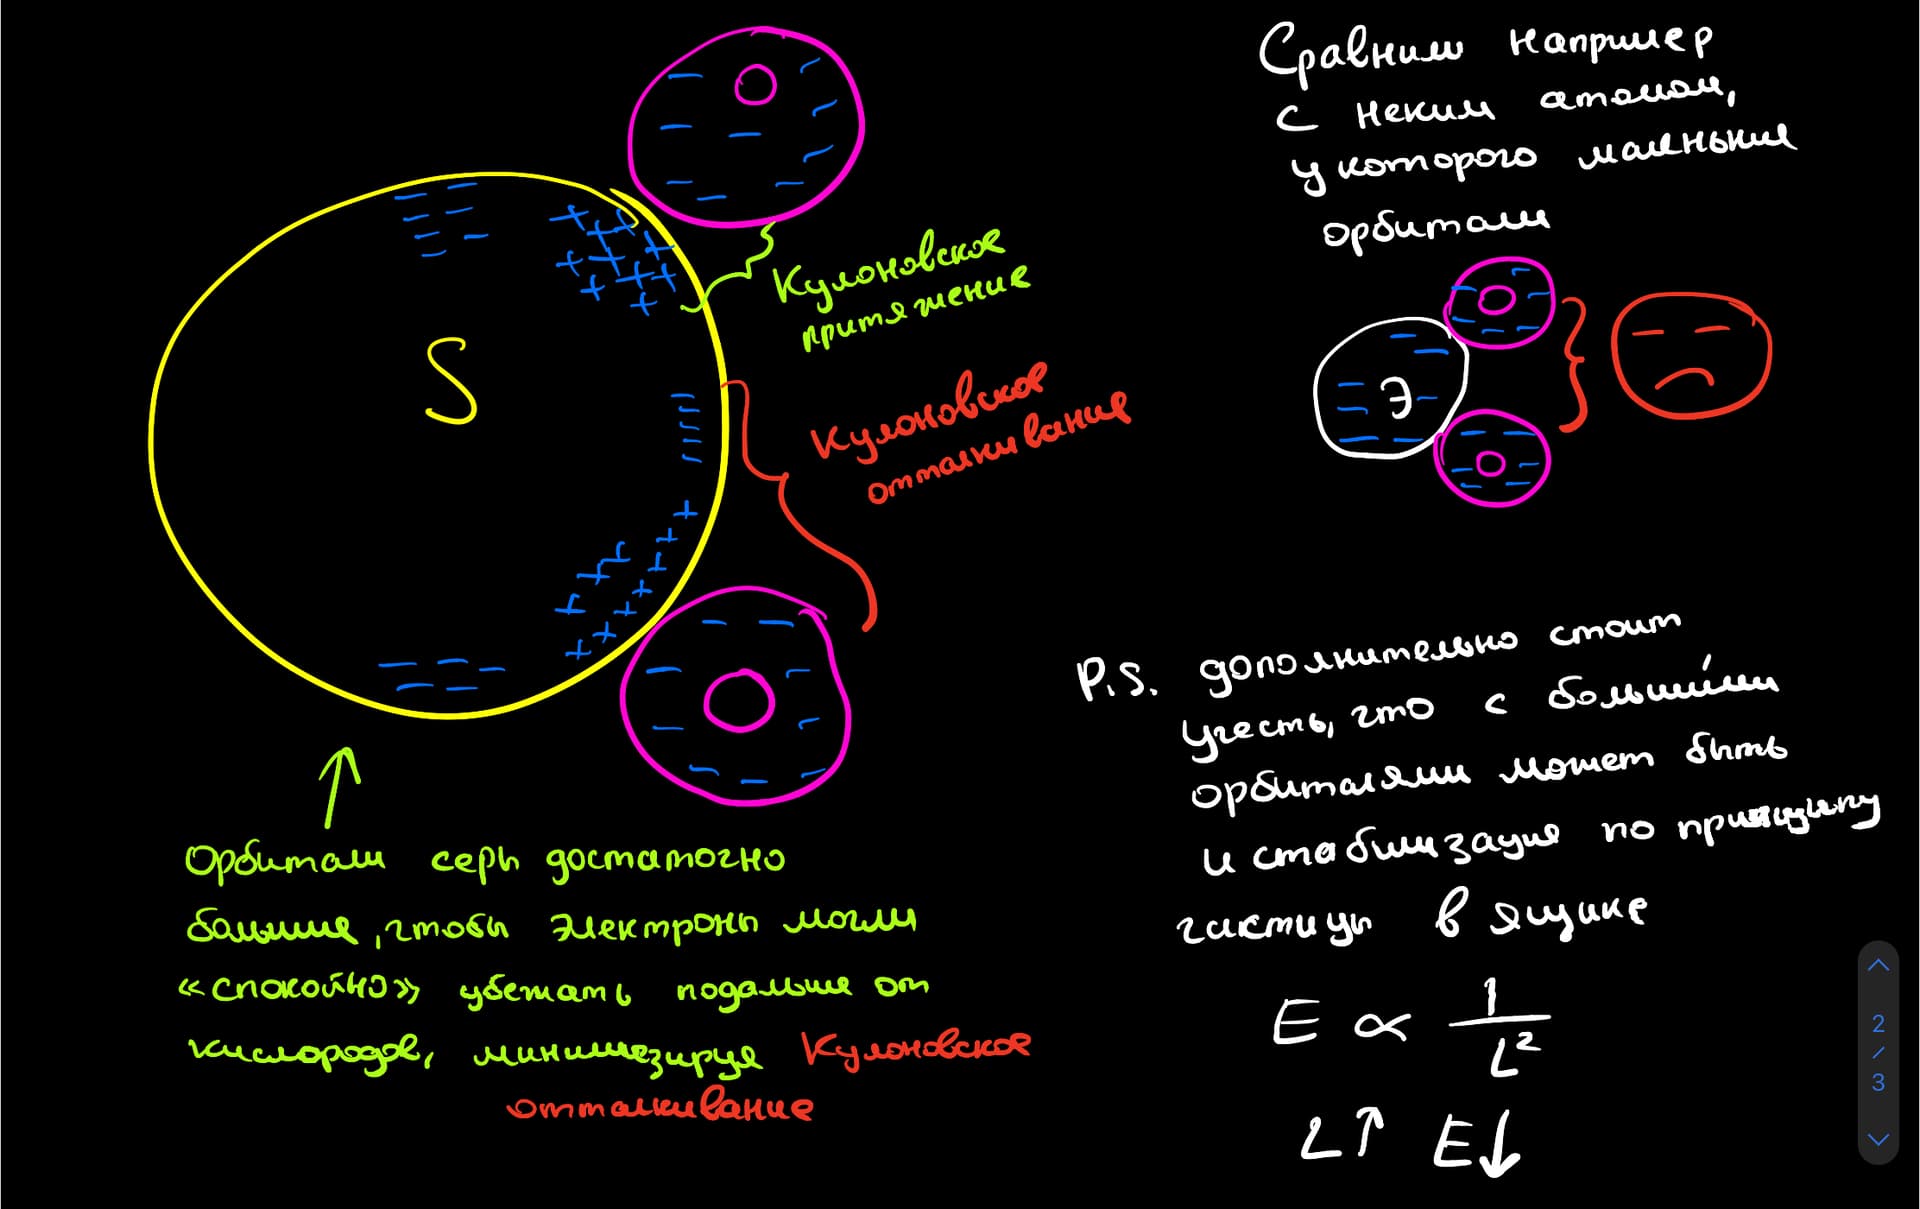 S
Кулоновское
притяжение
Кулоновское
отталкивание
Орбитали серы достаточно
большие, чтобы электроны могли
«спокойно» убежать подальше от
кислородов, минимизируя Кулоновское
отталкивание
Сравним например
с неким атомом,
у которого маленькие
орбитали
Э
P.S. дополнительно стоит
учесть, что с большими
орбиталями может быть
и стабилизация по принципу
частицы в ящике
E ∝ 1/L²
L↑ E↓
2
/
3